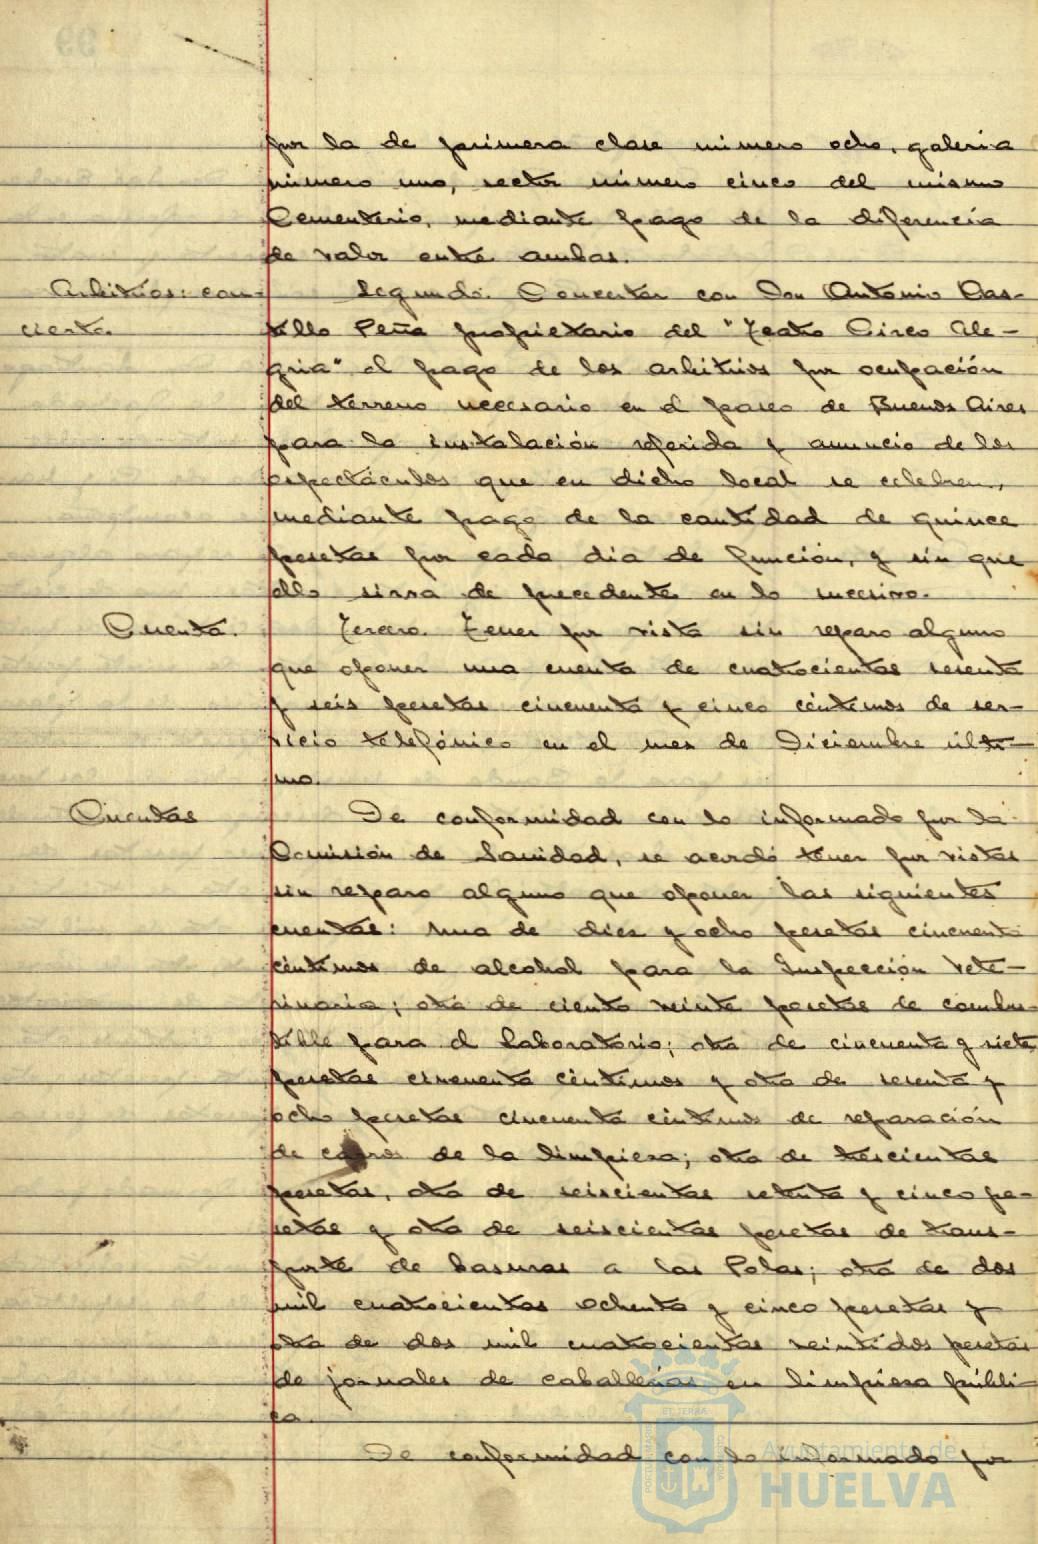 por la de primera clase número ocho, galería
número uno, sector número cinco del mismo
Cementerio, mediante pago de la diferencia
de valor entre ambas.
Arbitrios: con-
cierto.
Segundo. Concertar con Don Antonio Cas-
tillo Peña propietario del "Teatro Circo Ale-
gria" el pago de los arbitrios por ocupación
del terreno necesario en el paseo de Buenos Aires
para la instalación referida y anuncio de los
espectáculos que en dicho local se celebren,
mediante pago de la cantidad de quince
pesetas por cada dia de función, y sin que
ello sirva de precedente en lo sucesivo.
Cuenta.
Tercero. Tener por vista sin reparo alguno
que oponer una cuenta de cuatrocientas sesenta
y seis pesetas cincuenta y cinco céntimos de ser-
vicio telefónico en el mes de Diciembre últi-
mo.
Cuentas
De conformidad con lo informado por la
Comisión de Sanidad, se acordó tener por vistas
sin reparo alguno que oponer las siguientes
cuentas: una de diez y ocho pesetas cincuenta
céntimos de alcohol para la Inspección Vete-
rinaria; otra de ciento veinte pesetas de combus-
tible para el Laboratorio; otra de cincuenta y siete
pesetas cincuenta céntimos y otra de sesenta y
ocho pesetas cincuenta céntimos de reparación
de carros de la limpieza; otra de trescientas
pesetas, otra de seiscientas setenta y cinco pe-
setas y otra de seiscientas pesetas de trans-
porte de basuras a las Polas; otra de dos
mil cuatrocientas ochenta y cinco pesetas y
otra de dos mil cuatrocientas veintidos pesetas
de jornales de caballerías en limpieza públi-
ca.
De conformidad con lo informado por
Ayuntamiento de
HUELVA